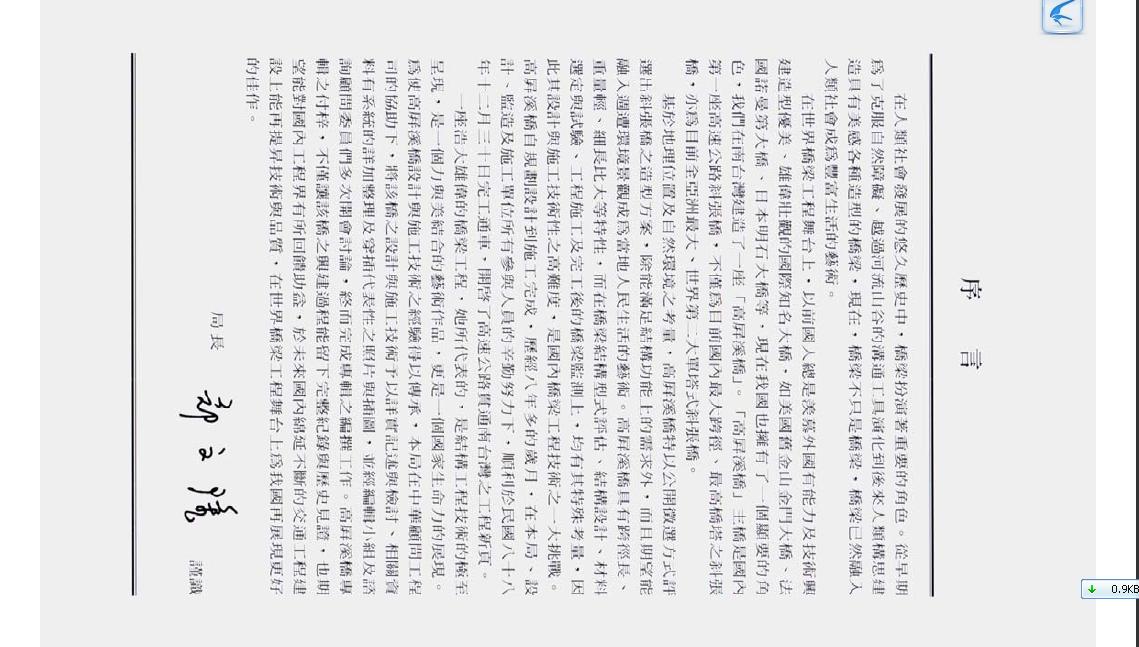 序言
在人類社會發展的悠久歷史中，橋梁扮演著重要的角色。從早期
為了克服自然障礙、越過河流山谷的溝通工具演化到後來人類構思建
造具有美感各種造型的橋梁，現在，橋梁不只是橋梁，橋梁已然融入
人類社會成為豐富生活的藝術。
在世界橋梁工程舞台上，以前國人總是羨慕外國有能力及技術興
建造型優美、雄偉壯觀的國際知名大橋，如美國舊金山金門大橋、法
國諾曼第大橋、日本明石大橋等，現在我國也擁有了一個顯要的角
色，我們在南台灣建造了一座「高屏溪橋」。「高屏溪橋」主橋是國內
第一座高速公路斜張橋，不僅為目前國內最大跨徑、最高橋塔之斜張
橋，亦為目前全亞洲最大、世界第二大單塔式斜張橋。
基於地理位置及自然環境之考量，高屏溪橋特以公開徵選方式評
選出斜張橋之造型方案，除能滿足結構功能上的需求外，而且期望能
融入週遭環境景觀成為當地人民生活的藝術。高屏溪橋具有跨徑長、
重量輕、細長比大等特性，而在橋梁結構型式評估、結構設計、材料
選定與試驗、工程施工及完工後的橋梁監測上，均有其特殊考量，因
此其設計與施工技術性之高難度，是國內橋梁工程技術之一大挑戰。
高屏溪橋自規劃設計到施工完成，歷經八年多的歲月，在本局、設
計、監造及施工單位所有參與人員的辛勤努力下，順利於民國八十八
年十二月三十日完工通車，開啓了高速公路貫通南台灣之工程新頁。
一座浩大雄偉的橋梁工程，她所代表的，是結構工程技術的極至
呈現，是一個力與美結合的藝術作品，更是一個國家生命力的展現。
為使高屏溪橋設計與施工技術之經驗得以傳承，本局在中華顧問工程
司的協助下，將該橋之設計與施工技術予以詳實記述與檢討、相關資
料有系統的詳加整理及穿插代表性之照片與插圖，並經編輯小組及諮
詢顧問委員們多次開會討論，終而完成專輯之編撰工作。高屏溪橋專
輯之付梓，不僅讓該橋之興建過程能留下完整紀錄與歷史見證，也期
望能對國內工程界有所回饋助益，於未來國內綿延不斷的交通工程建
設上能再提昇技術與品質，在世界橋梁工程舞台上為我國再展現更好
的佳作。
局長
謹識
0.9KB